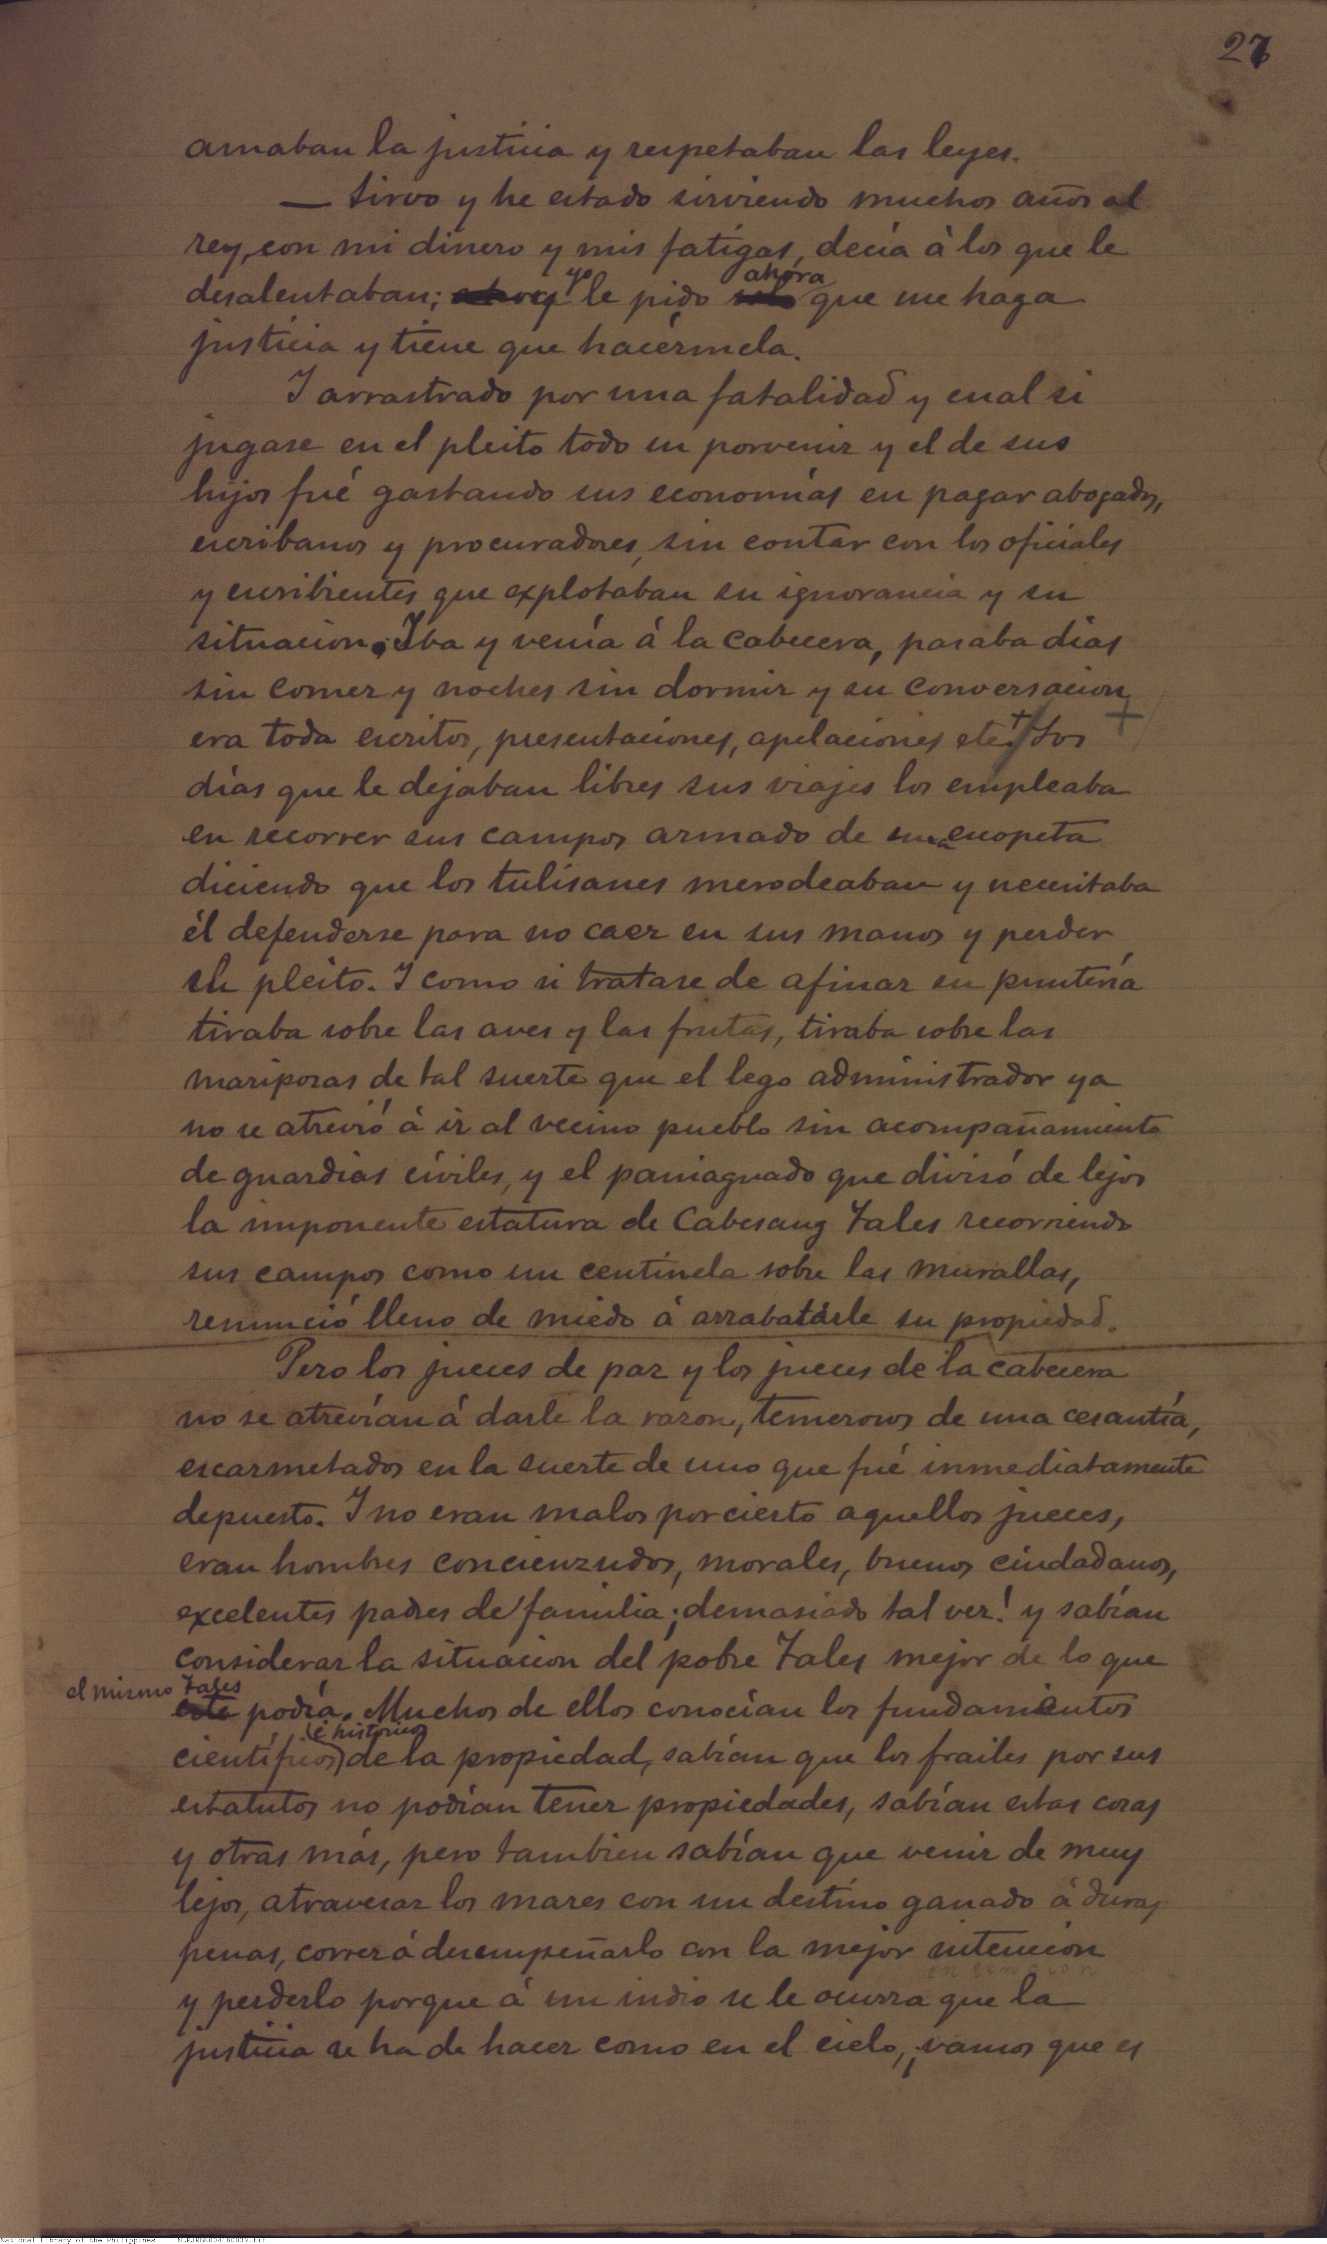 27
amaban la justicia y respetaban las leyes.
— Sirvo y he estado sirviendo muchos años al
rey, con mi dinero y mis fatigas, decía á los que le
yo ahora
desalentaban; le pido que me haga
justicia y tiene que hacérmela.
Y arrastrado por una fatalidad y cual si
jugase en el pleito todo su porvenir y el de sus
hijos fué gastando sus economías en pagar abogados,
escribanos y procuradores, sin contar con los oficiales
y escribientes que explotaban su ignorancia y su
situacion. Iba y venía á la cabecera, pasaba dias
sin comer y noches sin dormir y su conversacion
era toda escritos, presentaciones, apelaciones etc. Los
días que le dejaban libres sus viajes los empleaba
en recorrer sus campos armado de una escopeta
diciendo que los tulisanes merodeaban y necesitaba
él defenderse para no caer en sus manos y perder
el pleito. Y como si tratase de afinar su puntería
tiraba sobre las aves y las frutas, tiraba sobre las
mariposas de tal suerte que el lego administrador ya
no se atrevió á ir al vecino pueblo sin acompañamiento
de guardias civiles, y el paniaguado que divisó de lejos
la imponente estatura de Cabesang Tales recorriendo
sus campos como un centinela sobre las murallas,
renunció lleno de miedo á arrabatárle su propiedad.
Pero los jueces de paz y los jueces de la cabecera
no se atrevían á darle la razon, temerosos de una cesantía,
escarmetados en la suerte de uno que fué inmediatamente
depuesto. Y no eran malos por cierto aquellos jueces,
eran hombres concienzudos, morales, buenos ciudadanos,
excelentes padres de familia; demasiado tal vez! y sabían
considerar la situacion del pobre Tales mejor de lo que
el mismo Tales
este podía. Muchos de ellos conocían los fundamentos
(é históricos
científicos) de la propiedad, sabían que los frailes por sus
estatutos no podían tener propiedades, sabían estas cosas
y otras más, pero tambien sabían que venir de muy
lejos, atravesar los mares con un destino ganado á duras
penas, correr á desempeñarlo con la mejor intencion
y perderlo porque á un indio se le ocurra que la
justicia se ha de hacer como en el cielo, ¡vamos que es
National Library of the Philippines